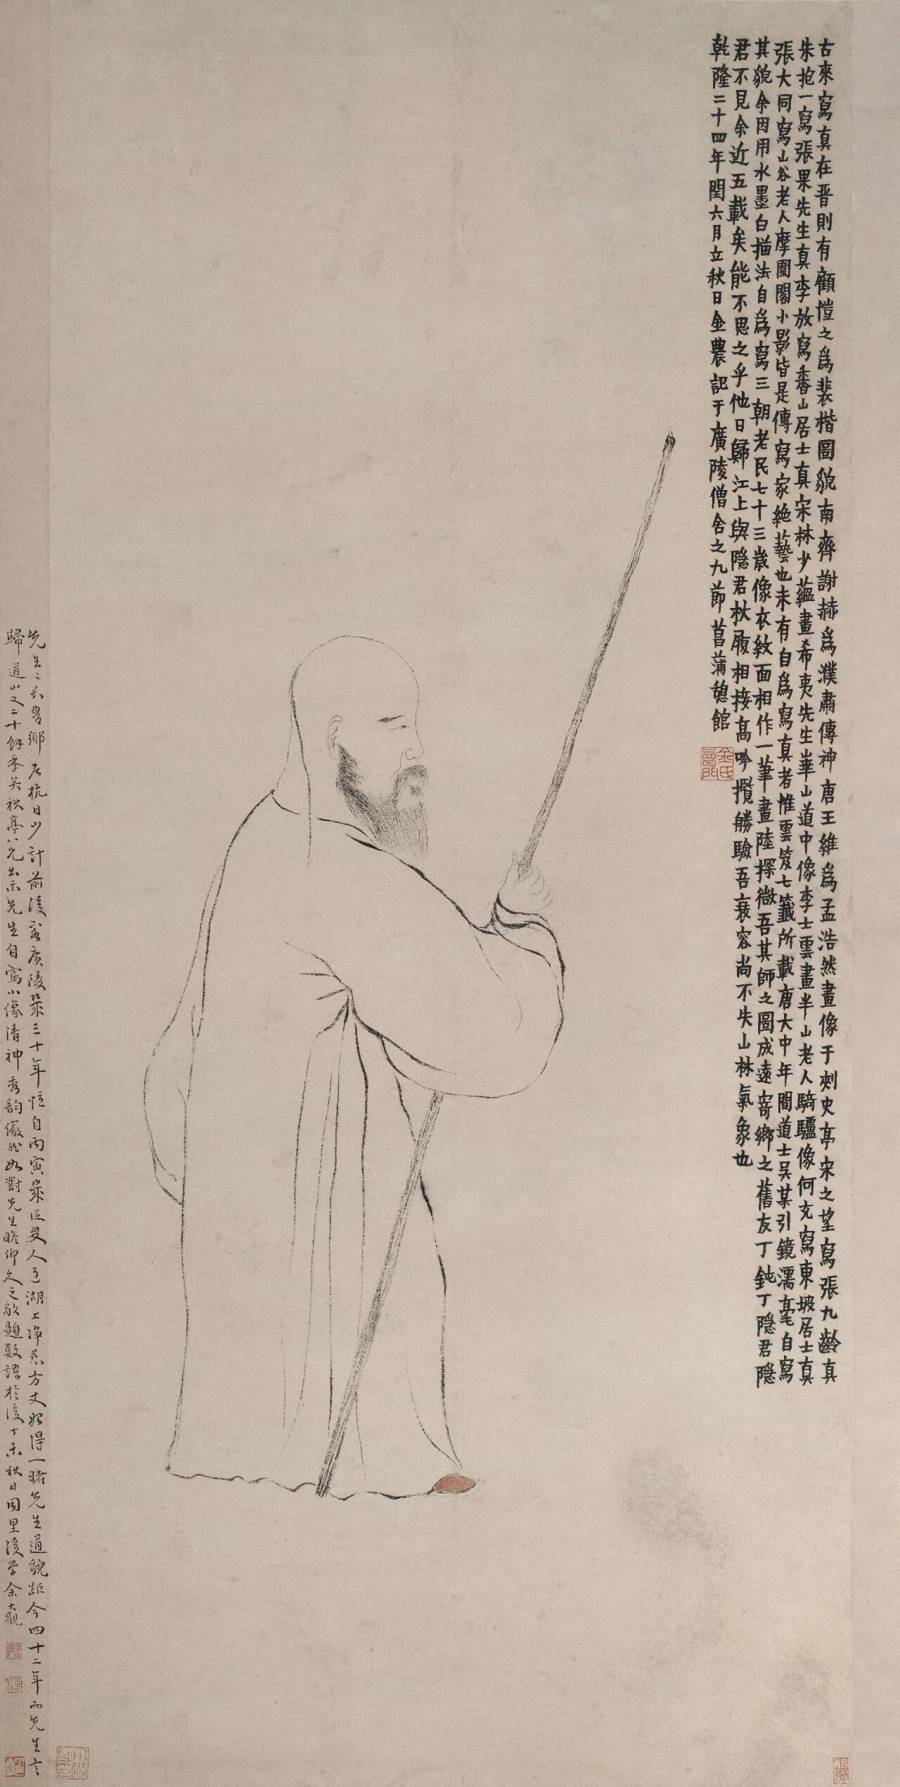 古來寫真在晋則有顧愷之為裴楷圖貌南齊謝赫為濮肅傳神唐王維為孟浩然畫像于刺史亭宋之望寫張九齡真
朱抱一寫張果先生真李放寫香山居士真宋林少蘊畫希夷先生華山道中像李士雲畫半山老人騎驢像何充寫東坡居士真
張大同寫山谷老人摩圍閣小影皆是傳寫家絶藝也未有自為寫真者惟雲笈七籤所載唐大中年間道士吴某引鏡濡毫自寫
其貌余因用水墨白描法自為寫三朝老民七十三歲像衣紋面相作一筆畫陸探微吾其師之圖成遠寄鄉之舊友丁鈍丁隱君隱
君不見余近五載矣能不思之乎他日歸江上與隱君杖履相接高吟攬勝驗吾衰容尚不失山林氣象也
乾隆二十四年閏六月立秋日金農記于廣陵僧舍之九節菖蒲憩館
金氏
壽門
先生吾鄉居杭日少計前後客廣陵幾三十年憶自丙寅人湖上淨慈方丈始得一睹先生道貌距今四十二年而先生之
歸道山又二十餘年矣秋亭八兄出示先生自寫小像清神秀韵儼然如對先生瞻仰久之敬題數語於後丁未秋日同里後學余大觀